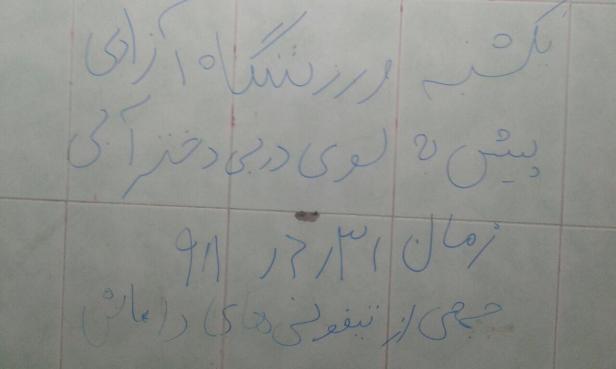 یکشنبه ورزشگاه آزادی
پیش به سوی دربی دختر آبی
زمان ۳۱ر۶ر ۹۸
جمعی از تیفوسی های داماش